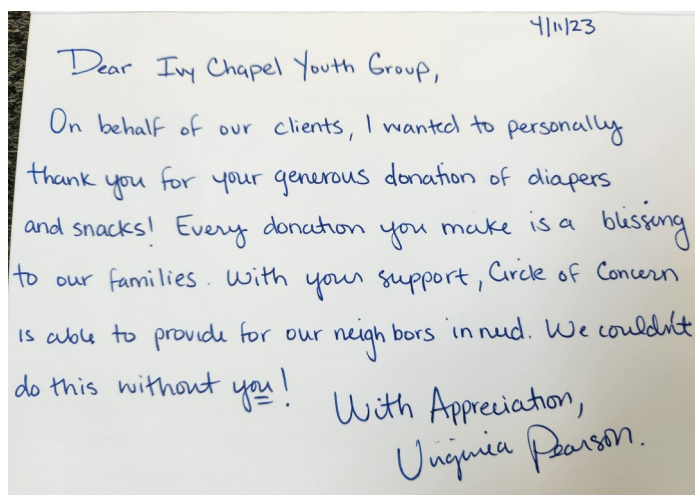 4/11/23
Dear Ivy Chapel Youth Group,
On behalf of our clients, I wanted to personally
thank you for your generous donation of diapers
and snacks! Every donation you make is a blessing
to our families. With your support, Circle of Concern
is able to provide for our neighbors in need. We couldn't
do this without you!
With Appreciation,
Virginia Pearson.